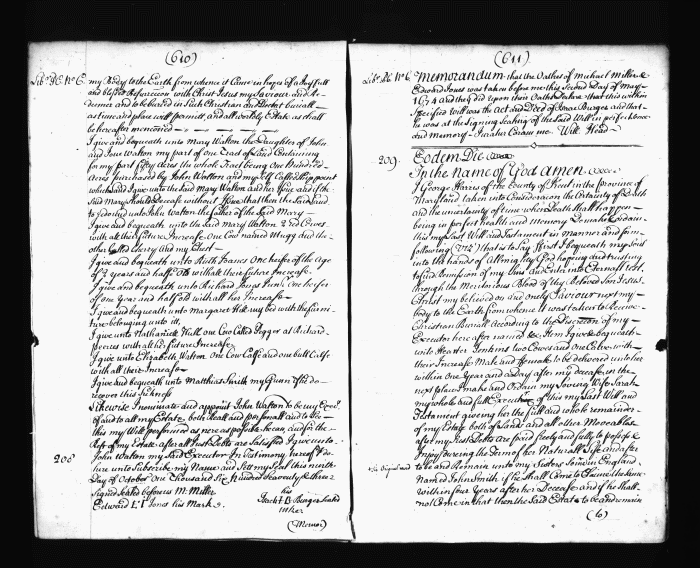 (610)
my Body to the Earth from whence it Came in hopes of a Joyfull
and blessed Resurrection with Christ Jesus my Saviour and Re-
deemer and to be buried in such Christian and Decent buriall
as time and place will permitt, and all worldly Estate as shall
be hereafter mencioned
I give and bequeath unto Mary Walton the Daughter of John
and Jane Walton my part of one Dead of Land Containing
in my part fifty Acres the whole Tract being One Hundred
Acres purchased by John Walton and my self Called
which said I give unto the said Mary Walton and her Issue and if the
said Mary should Decease without Issue that then the said Land
to redound unto John Walton the father of the said Mary
I give and bequeath unto the said Mary Walton 2 red Cowes
with all their future Increase One Cow named Mugg and the
other Called Cherry And my Chest
I give and bequeath unto Ruth Joanes One heifer of the Age
of 2 years and half old with all their future Increase
I give and bequeath unto Richard Jones Junr. One heifer
of one Year and half old with all her Increase
I give and bequeath unto Margaret Hill my bed with the furni-
ture belonging unto itt,
I give unto Nathaniell Hill one Cow Called Pegger at Richard
with all her future Increase
I give unto Elizabeth Walton One Cow Calfe and one bull Calfe
with all their Increase
I give and bequeath unto Matthias Smith my Gunn if he do
recover this Sickness
Likewise I nominate and appoint John Walton to be my Execr.
of and to all my Estate both reall and personall and to see
this my Will performed as near as possible he can, and for the
Rest of my Estate after all Just Debts are Satisfied I give unto
John Walton my said Executor In Testimony hereof I do
hereunto Subscribe my Name and Sett my Seal this ninth
208
Day of October One Thousand Six Hundred Seaventy & three
Signed Sealed before us M: Miller
Edward E I Jones his Mark
his
B Burger Sealed
(Memor)
(611)
Memorandum that the Oathes of Michael Miller &
Edward Jones was taken before me this Second Day of May
1674 and they did upon their Oaths Declare that this within
Specified Will was the Act and Deed of Burger and that
he was at the Signing Sealing of the Said Will in perfect
and Memory Jurator Coram me Will Head
209.
Eodem Die
In the Name of God Amen
I George Harris of the County of Kent in the Province of
Maryland taken into Consideracon the Certainty of Death
and the uncertainty of time when Death shall happen
being in perfect health and memory Do make & ordain
this my Last Will and Testament in manner and form
following (Vizt) That is to say ffirst I bequeath my Soul
into the hands of Allmighty God hoping and trusting
full Remission of my Sins and Enter into Eternall rest,
through the Meritorious Blood of thy Beloved Son Jesus
Christ my beloved on and onely Saviour next my
body to the Earth from whence it was taken to Receive
Christian Burial According to the Discretion of my
Executor here after named &c Item I give & bequeath
unto Hester Jenkins two Cowes and one Calve with
their Increase Male and ffemale to be delivered unto her
within One Year and a day after my decease, in the
next place I make and Ordain my Loving Wife Sarah
my whole and full Executrix of this my Last Will and
Testament giveing her the full and whole remainder
of my Estate both of Lands and all other Moveables
after my Just Debts are paid freely and fully to possess &
Enjoy dureing the Term of her Naturall Life and after
to be and Remain unto my Sisters Sonn in England
Named John Smith if he shall Come to Claime the same
Within four Years after her Decease and if he shall
not Come in that then the Said Estate to be and remain
(to)